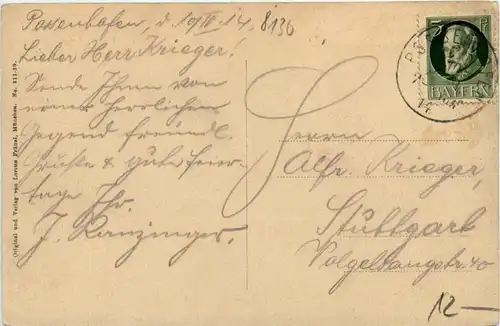 Possenhofen, d. 19/IV.14.
8136
Lieber Herr Krieger!
Sende Ihnen von
einer herrlichen
Gegend freundl.
Grüße & gute Feier-
tage Ihr.
J. Kanzinger.
Herrn
Alfr. Krieger,
Stuttgart
Vogelsangstr. 40
12—
5
BAYERN
14
Original und Verlag von Lorenz Fränzl, München. No.